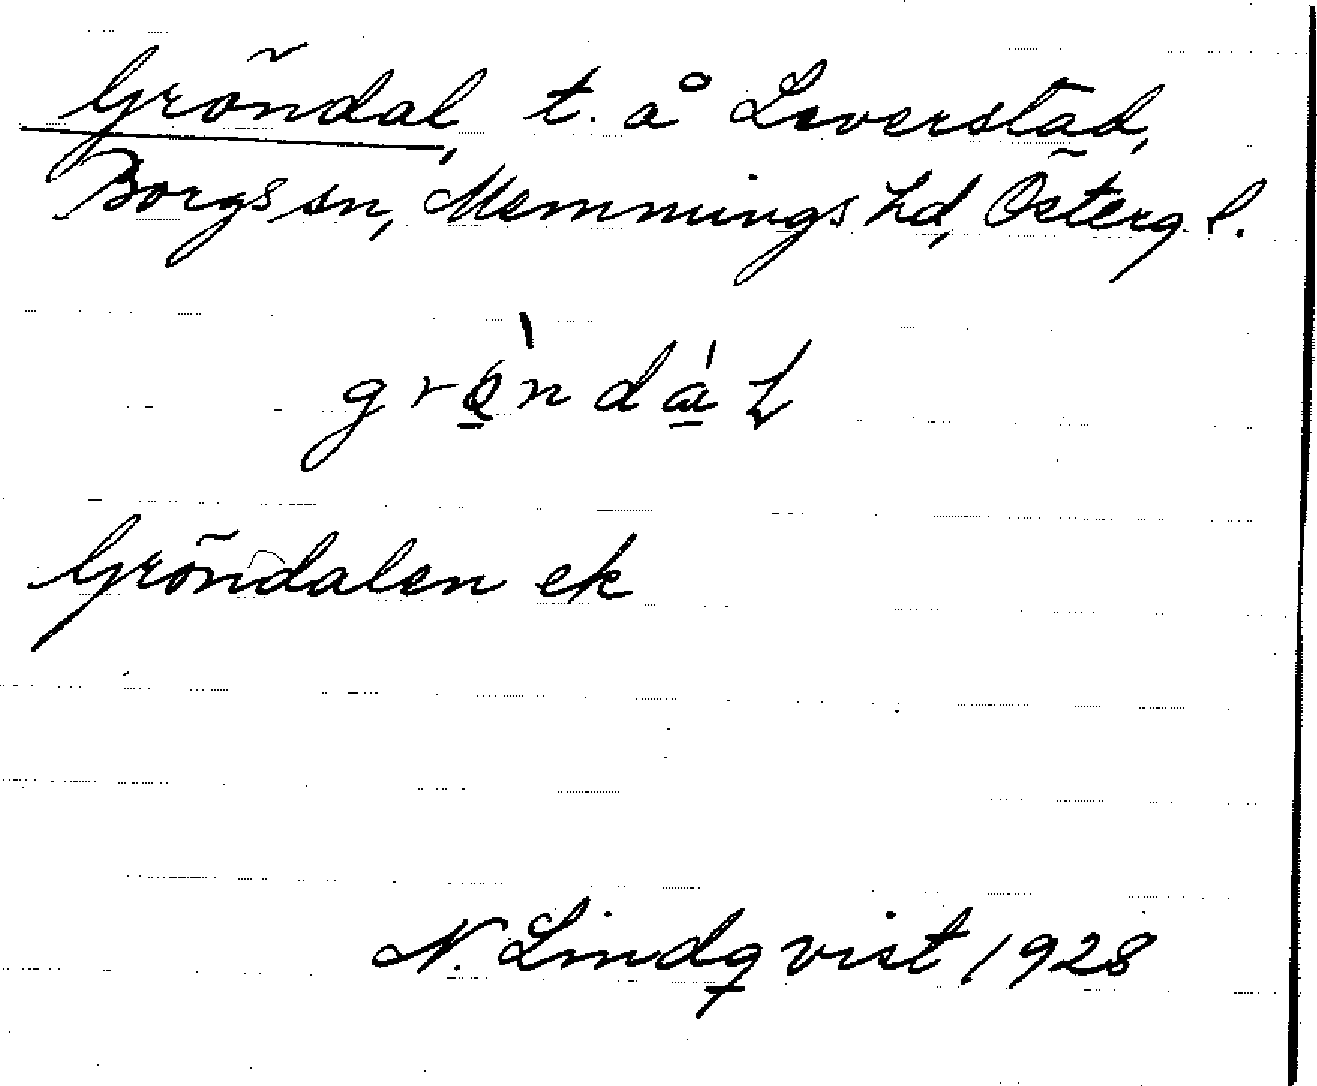 Gröndal, t. å Leverstad,
Borgs sn, Memmings hd, Österg l.
grö̀ndál
Gröndalen ek
N. Lindqvist 1928